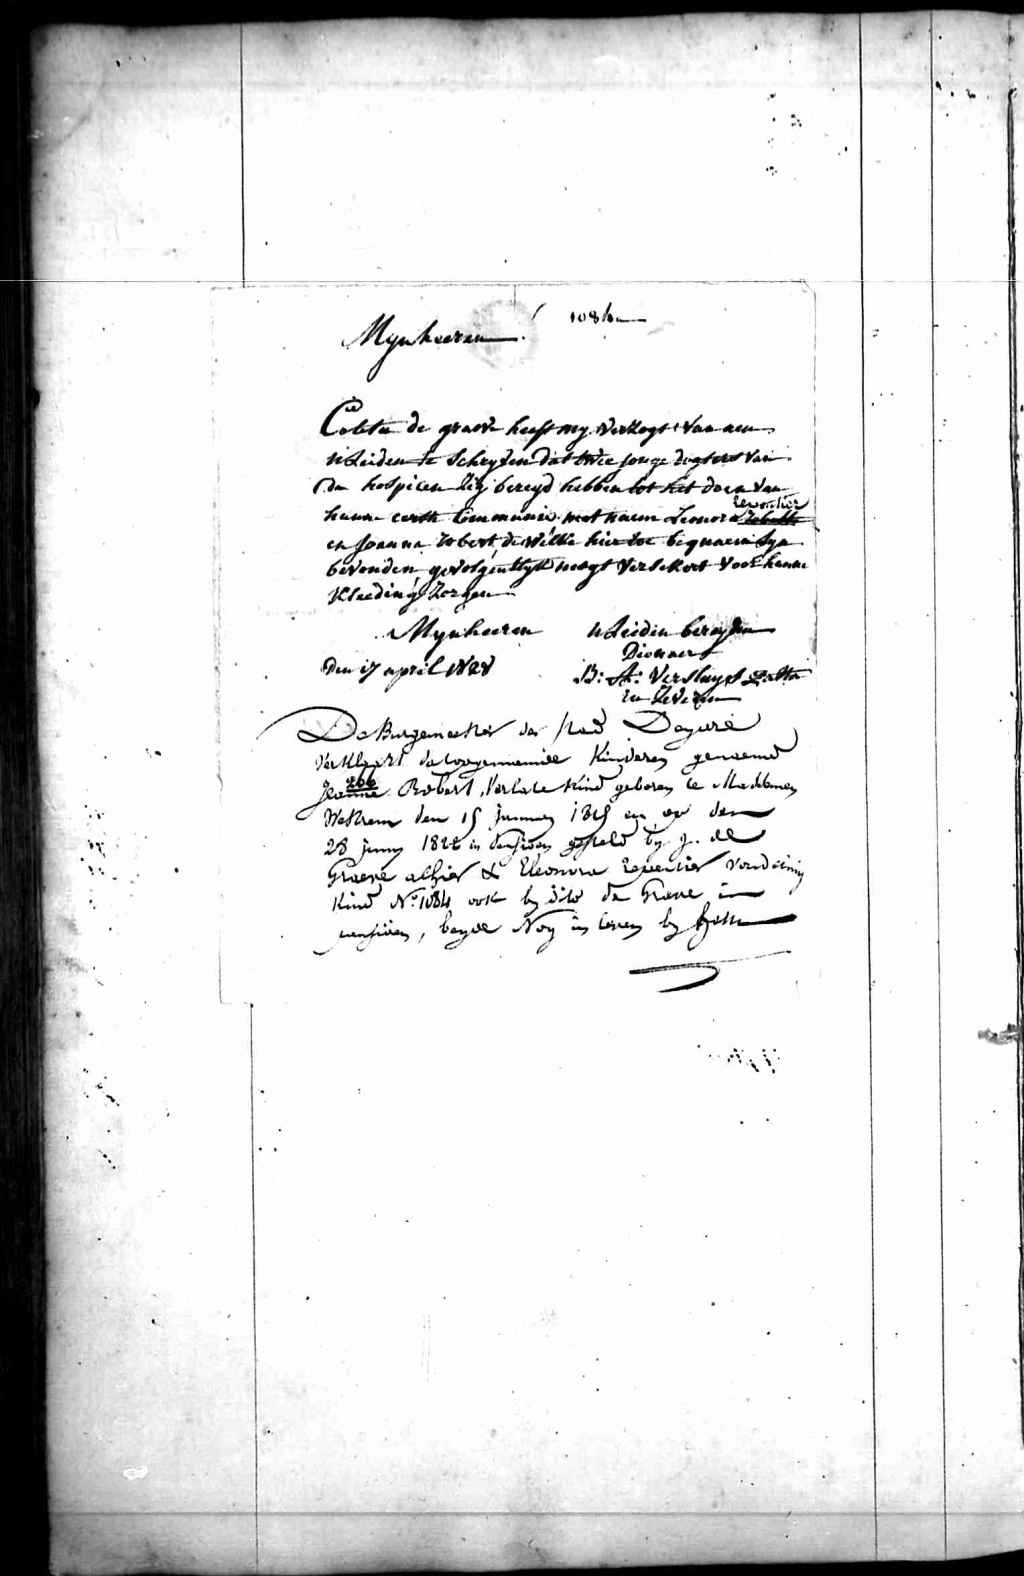 1084
Mynheeren!
Coleta de graeve heeft my verzogt van aen
ulieden te schryven dat twee jonge dogters van
de hospicen zig bereyd hebben tot het doen van
hunne eerste Communie met naem Leonora
en Joanna Robert de welke hier toe bequaem syn
bevonden, gevolgentlyk nogt verzekert voor hunne
kleeding zorgen
Mynheeren ulieden bereyden
Dienaer
Den 17 april 1828 B: A: Versluys
in Zeveren
De Burgemeester der stad Deynze
verklaert de voorgenoemde kinderen genaemd
Jeanne Robert, verlate kind geboren te
den 15 1815 en op den
28 juny 1828 in pensioen gesteld by J. de
Graeve alhier & Eleonora Reventier vondeling
kind No. 1084 ook by dito de Graeve in
pensioen, beyde nog in leven